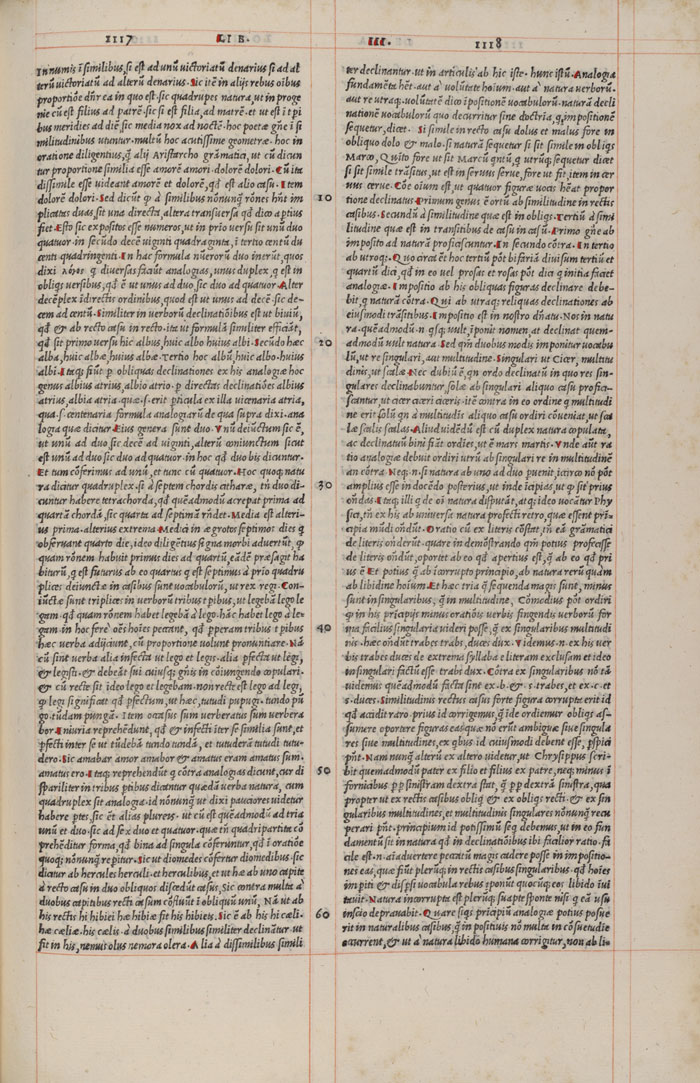 1117 LIB.
III. 1118
In numis i similibus, si est ad unū victoriatū denarius si ad al
terū victoriatū ad alterū denarius. Sic itē in alijs rebus oībus
proportiōe dr̄ ea in quo est. sic quadrupes natura, ut in proge
nie cū est filius ad patrē. sic si est filia, ad matrē. et ut est i t pi
bus meridies ad diē sic media nox ad noctē. hoc poetæ gn̄e i si
militudinibus utuntur. multū hoc acutissime geometræ. hoc in
oratione diligentius, q̄ alij Aristarcho grāmatici, ut cū dicun
tur proportione similia esse amorē amori. dolorē dolori. Cū ita
dissimile esse uideant amorē et dolorē, qd̄ est alio casu. Item
dolorē dolori. Sed dicūt ꝙ à similibus nōnunq̄ rōnes hn̄t im
plicatas duas, sit una directa, altera transuersa qd̄ dico aptius
fiet. Esto sic expositos esse numeros, ut in prīo uersu sit unū duo
quatuor. in secūdo decē uiginti quadraginta, i tertio centū du
centi quadringenti. In hac formula nūerorū duo inerūt, quos
dixi λόγοι q diuersas faciūt analogias, unus duplex, q est in
obliqs uersibus, qd̄ ē ut unus ad duo, sic duo ad quatuor. Alter
decēplex idirectis ordinibus, quod est ut unus ad decē. sic de-
cem ad centū. Similiter in uerborū declinatiōibus est ut biuiū,
qd̄ & ab recto casu in recto. ita ut formulā similiter efficiāt,
qd̄ sit primo uersu hic albus, huic albo huius albi. Secūdo hæc
alba, huic albæ, huius albæ. tertio hoc albū, huic albo. huius
albi. Itaq; fiūt p obliquas declinationes ex his analogiæ hoc
genus albius atrius, albio atrio. p directas declinatiōes albius
atrius, albia atria. quæ. s. erit pticula ex illa uicenaria atria,
qua. s. centenaria formula analogiarū de qua supra dixi. ana
logia quæ dicitur. Eius genera sunt duo. Vnū deiūctum sic ē,
ut unū ad duo sic decē ad uiginti, alterū coniunctum sicut
est unū ad duo sic duo ad quatuor. in hoc qd̄ duo bis dicuntur.
Et tum cōferimus ad unū, et tunc cū quatuor. Hoc quoq; natu
ra dicitur quadruplex. sic à septem chordis citharæ, tn̄ duo di-
cuntur habere tetrachorda, qd̄ quēadmodū acrepat prima ad
quartā chordā. sic quarta ad septimā rn̄det. Media est alteri-
us prima. alterius extrema. Medici in ægrotos septimos dies q
obseruant quarto die, ideo diligētius signa morbi aduertūt, ꝙ
quam rōnem habuit primus dies ad quartū, eādē præsagit ha
biturū, q est futurus ab eo quartus q est septimus à prīo quadru
plices deiunctæ in casibus sunt uocabulorū, ut rex regi. Con-
iūctæ sunt triplices in uerborū tribus t pibus, ut legebā lego le
gam. qd̄ quam rōnem habet legebā à lego. hāc habet lego à le-
gam. in hoc ferè oēs hoīes peccant, qd̄ pperam tribus t pibus
hæc uerba adijciunt, cū proportione uolunt pronuntiare. Nā
cū sint uerba alia infecta ut lego et legis. alia pfecta ut legi,
& legisti. & debeāt sui cuiusq; gn̄is in cōiungendo copulari.
& cū recte sit ideo lego et legebam. non recte est lego ad legi,
ꝙ legi significat qd̄ pfectum, ut hæc, tutudi pupugi. tundo pū
go. tūdam pungā. Item occæsus sum uerberatus sum uerbera
bor. Eniuria reprehēdunt, qd̄ & īfecti iter se similia sunt, et
pfecti inter se ut tūdebā tundo tundā, et tutuderā tutudi tutu-
dero. Sic amabar amor amabor & amatus eram amatus sum.
amatus ero. Itaq; reprehēdūt q cōtra analogias dicunt, cur di
sparīliter in tribus ptibus dicantur quædā uerba natura, cum
quadruplex sit analogia. id nōnunq̄ ut dixi pauciores uidetur
habere ptes, sic ēt alias plureis. ut cū est quēadmodū ad tria
unū et duo. sic ad sex duo et quatuor. quæ tn̄ quadripartitæ cō
prehēditur forma, qd̄ bina ad singula cōferuntur, qd̄ i oratiōe
quoq; nōnunq̄ repitur. Sic ut diomedes cōfertur diomedibus. sic
dicitur ab hercules herculi. et herculibus, et ut hæ ab uno capite
à recto casu in duo obliquos discædūt casus, Sic contra multa à
duobus capitibus recti casum cōfluūt i obliquū unū, Nā ut ab
his rectis hi hibiei hæ hibiæ fit his hibieis. Sic ē ab his hi cæli.
hæ cæliæ. his cælis. à duobus similibus similiter declinātur. ut
fit in his, nemuīolus nemora olera. Alia à dissimilibus simili
ter declinantur. ut in articulis ab hic iste. hunc istū. Analogiæ
fundamēta hēt. aut à uolūtate hoīum. aut à natura uerborū.
aut re utraq;. uolūtatē dico ipositionē uocabulorū. naturā decli
nationē uocabulorū quo decurritur sine doctria, q, impositionē
sequetur, dicet. Si simile in recto casu dolus et malus fore in
obliquo dolo & malo. si naturā sequetur si sit simile in obliqs
Marco, Quito fore ut sit Marcū Qntū q utrūq; sequetur dicet
si sit simile trāsitus, ut est in seruus serue, fore ut fit item in cer
uus cerue. Cōe oīum est, ut quatuor figuræ uocis hēat propor
tione declinatus. Primum genus ē ortū ab similitudine in rectis
casibus. Secundū à similitudine quæ est in obliqs. Tertiū à simi
litudine quæ est in transitibus de casu in casū. Primo gn̄e ab
imposito ad naturā proficiscuntur. In secundo cōtra. In tertio
ab utroq;. Quo circa ēt hoc tertiū pōt bifariā diuisum tertiū et
quartū dici, qd̄ in eo uel prosas et rosas pōt dici q initia faciet
analogiæ. Impositio ab his obliquas figuras declinare debe-
bit. q naturā cōtra. Qui ab utraq; reliquas declinationes ab
eiusmodi trāsitibus. Impositio est in nostro dn̄atu. Nos in natu
ra. quēadmodū. n. qsq; uult, iponit nomen, at declinat quem-
admodū uult natura. Sed qm̄ duobus modis imponitur uocabu
lū, ut re singulari, aut multitudine. Singulari ut Cicer, multitu
dines, ut scalæ. Nec dubiū ē, qn ordo declinatū in quo res sin-
gulares declinabuntur solæ ab singulari aliquo casu profici-
scantur, ut cicer ciceri ciceris. itē contra in eo ordine q multitudi
ne erit solū qn à multitudīs aliquo casu ordiri cōueniat, ut scal
læ scalis scalas. Aliud uidēdū est cū duplex natura copulata,
ac declinatum bini fiāt ordies, ut ē mars martis. Vnde aūt ra
tio analogiæ debeāt ordiri utrū ab singulari re in multitudinē
an cōtra. Neq;. n. si natura ab uno ad duo puenit, icirco nō pōt
amplius esse in docēdo posterius, ut inde icipias, ut ꝙ sit prius
ōn̄das. Itaq; illi q̄ de oī natura disputāt, atq; ideo uocātur Phy
sici, tn̄ ex his ab uniuersa natura profecti retro, quæ essent prī-
cipia mūdi ōn̄dūt. Oratio cū ex literis cōstat, tn̄ eā grāmatici
de literis ōn̄derūt. quare in demōstrando qm̄ potius proficisse
de literis ōn̄dit, oportet ab eo qd̄ apertius est, q̄ ab eo qd̄ pri
us ē. Et potius q̄ ab icorrupto principio, ab natura rerū quàm
ab libidine hoīum. Et hæc tria q̄ sequenda magis sunt, minus
sunt in singularibus, q̄ in multitudine, Cōmedius pōt ordiri
ꝙ in his prīcipijs minus eratiōis uerbis singendis uerborū for
mæ facilius singularia uideri posse, q̄ ex singularibus multitudi
nis. hæc ōn̄dūt trabes trabi, duces dux. Videmus. n. ex his uer
bis trabes duces de extrema syllaba e literam exclusam et ideo
in singulari factū esse trabs dux. Cōtra ex singularibus nō tā
uidemus quēadmodū facta sint ex. b. &. s. trabes, et ex. c. et
s. duces. Similitudinis rectus casus forte figura corruptæ erit id
qd̄ accidit raro. prius id corrigemus, q̄ ide ordiemur obliqs as-
sumere oportere figuras eas quæ nō erūt ambiguæ siue singula
res siue multitudines, ex qbus id cuiusmodi debent esse, pspici
pn̄t. Nam nunq̄ alterū ex altero uidetur, ut Chrysippus scri-
bit quemadmodū pater ex filio et filius ex patre, neq; minus i
fornicibus pp̄ sinistrum dextra stat, q̄ pp̄ dextrā sinistra, qua
propter ut ex rectis casibus obliq & ex obliqs recti. & ex sin
gularibus multitudines, et multitudinis singulares nōnunq̄ recu
perari pn̄t. principium id potissimū seq debemus, ut in eo fun
damentū sit in natura qd̄ in declinatiōibus ibi facilior ratio. fa
cile est. n. aīaduertere peccatū magis cadere posse in impositio-
nes eas, quæ fiūt plerūq; in rectis casibus singularibus. qd̄ hoīes
impiti & dispsi uocabula rebus iponūt quocūq; eos libido iui
tauit. Natura incorrupta est plerūq; suapte sponte nisi q eā usu
inscio deprauabit. Quare siqs prīcipiū analogiæ potius posue
rit in naturalibus casibus, q̄ in positiuis nō multæ in cōsuetudie
occurrent, & ut à natura libido humana corrigitur, non ab li-
10
20
30
40
50
60